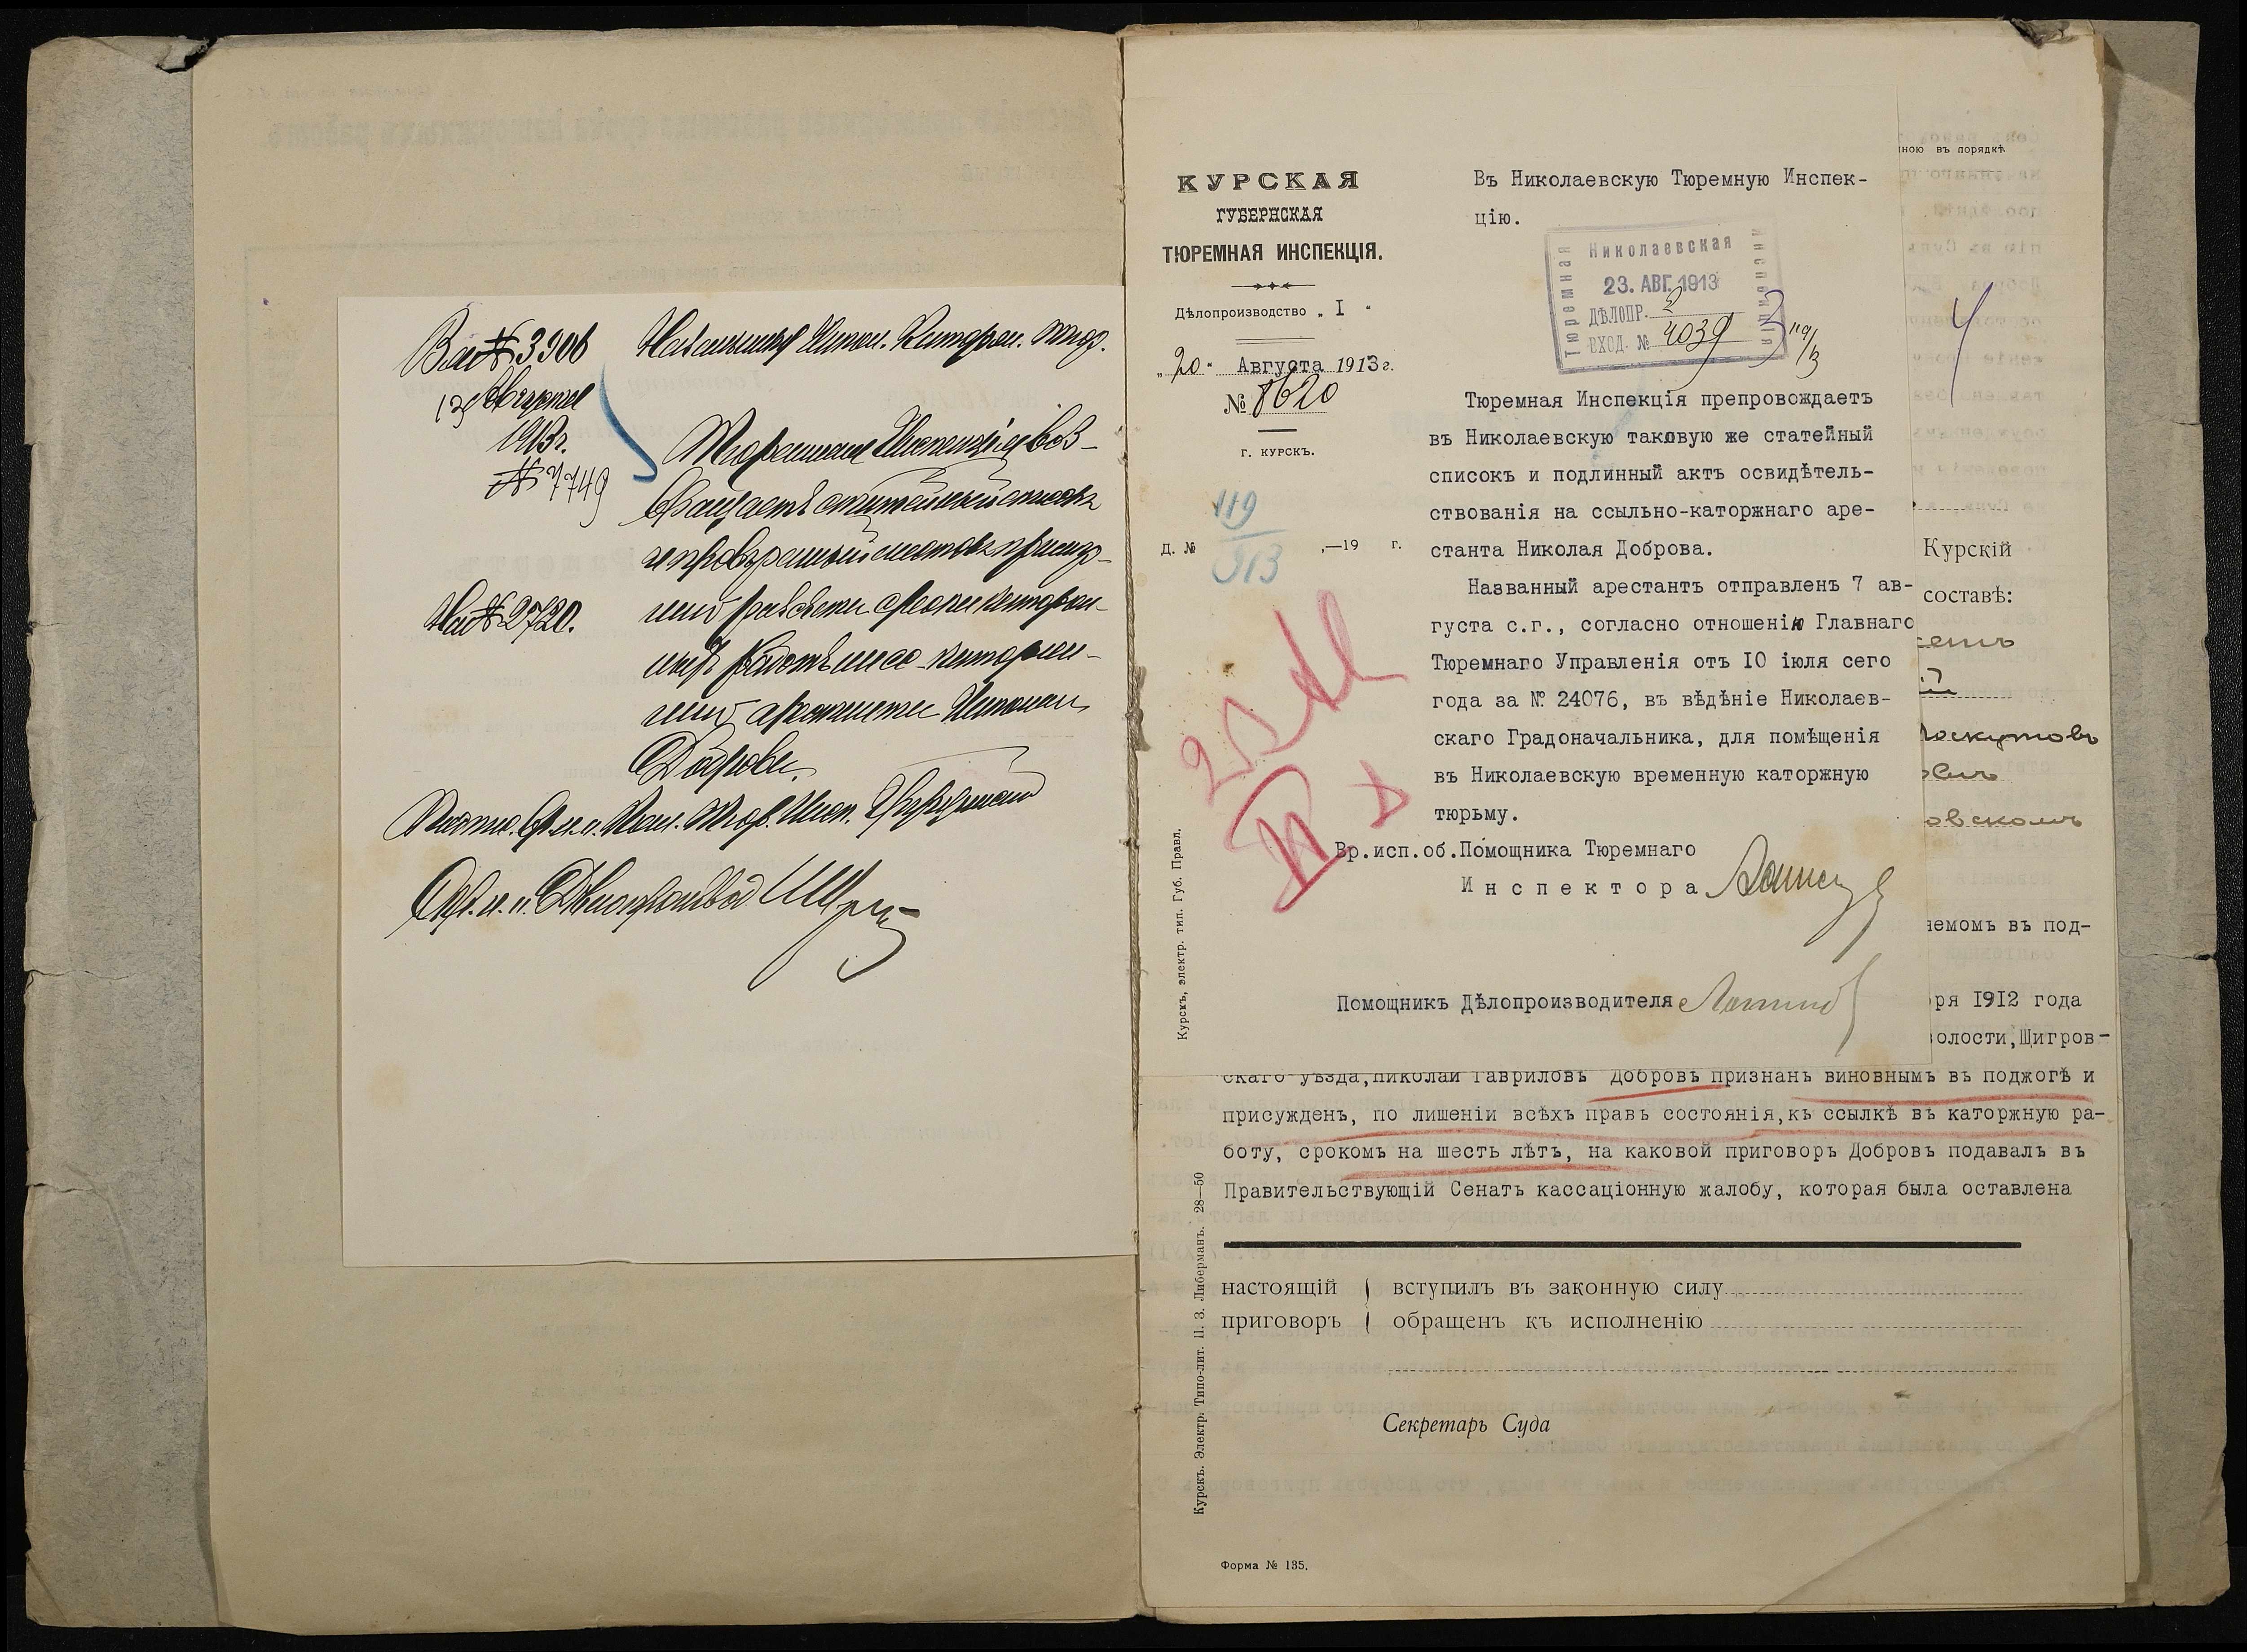 Вх № 3906
Августа
1913 г.
№ 7749
На № 2720.
Начальнику Никол. Каторжн. тюр.
Тюремная Инспекція воз-
вращаетъ статейный списокъ
и провѣренный листокъ
разсчета срока каторж-
ныхъ работъ ссыльно-каторж-
наго арестанта Николая
Доброва.
КУРСКАЯ
ГУБЕРНСКАЯ
ТЮРЕМНАЯ ИНСПЕКЦІЯ.
Дѣлопроизводство „ I “
„ 20 “ Августа 1913 г.
№ 8620
г. КУРСКЪ.
119
913
Д. № ,—19 г.
Въ Николаевскую Тюремную Инспек-
цію.
Николаевская
Тюремная
Инспекція
23. АВГ. 1913
ДѢЛОПР. 2
ВХОД. № 4039
4
Тюремная Инспекція препровождаетъ
въ Николаевскую таковую же статейный
списокъ и подлинный актъ освидѣтель-
ствованія на ссыльно-каторжнаго аре-
станта Николая Доброва.
Названный арестантъ отправленъ 7 ав-
густа с.г., согласно отношенію Главнаго
Тюремнаго Управленія отъ IO іюля сего
года за № 24076, въ вѣдѣніе Николаев-
скаго Градоначальника, для помѣщенія
въ Николаевскую временную каторжную
тюрьму.
Вр.исп.об.Помощника Тюремнаго
Инспектора
Помощникъ Дѣлопроизводителя
Курскъ, электр. тип. Губ. Правл.
ною въ порядкѣ
Курскій
составѣ:
оскутовъ
овскомъ
яемомъ въ под-
ря I9I2 года
олости, Щигров-
скаго уѣзда, Николай Гавриловъ Добровъ признанъ виновнымъ въ поджогѣ и
присужденъ, по лишеніи всѣхъ правъ состоянія, къ ссылкѣ въ каторжную ра-
боту, срокомъ на шесть лѣтъ, на каковой приговоръ Добровъ подавалъ въ
Правительствующій Сенатъ кассаціонную жалобу, которая была оставлена
настоящій вступилъ въ законную силу
приговоръ обращенъ къ исполненію
Секретарь Суда
Курскъ. Электр. Типо-лит. П. З. Либерманъ. 28—50
Форма № 135.